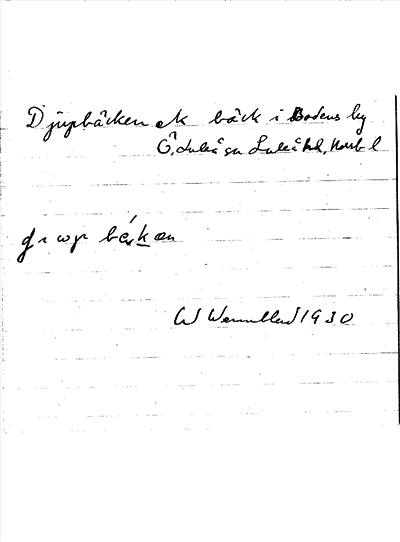 Djupbäcken ek bäck i Bodens by
Ö. Luleå sn Luleå hd, Norrb l
bäcken
W Wennblad 1930